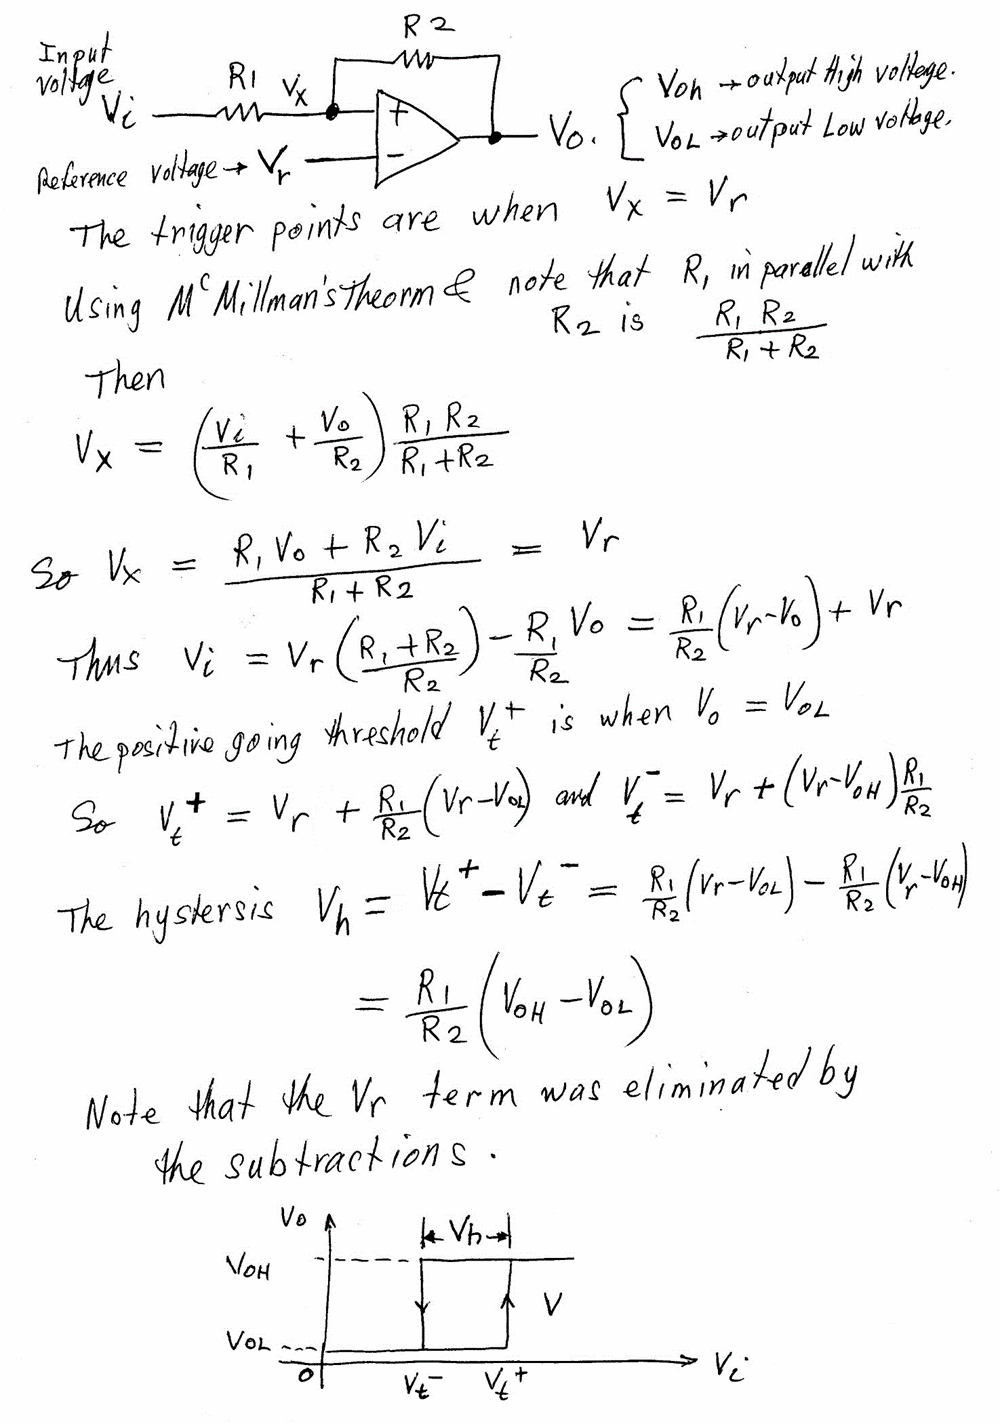 R2
Input voltage
R1 Vx
Vi
+
-
Vo. { Voh → output High voltage.
VOL → output Low voltage.
Reference voltage → Vr
The trigger points are when Vx = Vr
Using McMillman's Theorm & note that R1 in parallel with
R2 is R1 R2 / (R1 + R2)
Then
Vx = (Vi/R1 + Vo/R2) R1 R2 / (R1 + R2)
So Vx = (R1 Vo + R2 Vi) / (R1 + R2) = Vr
Thus Vi = Vr ((R1 + R2)/R2) - R1/R2 Vo = R1/R2 (Vr - Vo) + Vr
The positive going threshold Vt+ is when Vo = VOL
So Vt+ = Vr + R1/R2 (Vr - VOL) and Vt- = Vr + (Vr - VOH) R1/R2
The hystersis Vh = Vt+ - Vt- = R1/R2 (Vr - VOL) - R1/R2 (Vr - VOH)
= R1/R2 (VOH - VOL)
Note that the Vr term was eliminated by
the subtractions.
Vo
Vh
VOH
V
VOL
0 Vt- Vt+ Vi